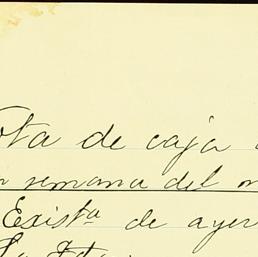 ota de caja
semana del
Exist.ª de ayer